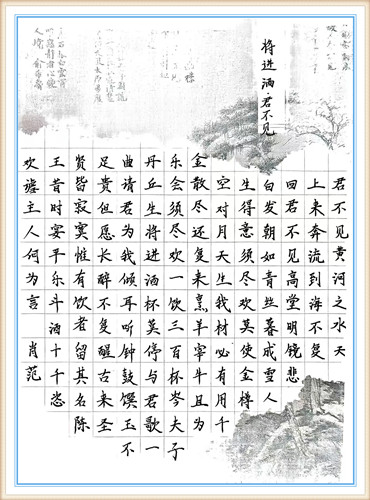 将进酒·君不见
君不见黄河之水天
上来奔流到海不复
回君不见高堂明镜悲
白发朝如青丝暮成雪人
生得意须尽欢莫使金樽
空对月天生我材必有用千
金散尽还复来烹羊宰牛且为
乐会须尽欢一饮三百杯岑夫子
丹丘生将进酒杯莫停与君歌一
曲请君为我倾耳听钟鼓馔玉不
足贵但愿长醉不复醒古来圣
贤皆寂寞惟有饮者留其名陈
王昔时宴平乐斗酒十千恣
欢谑主人何为言 肖范